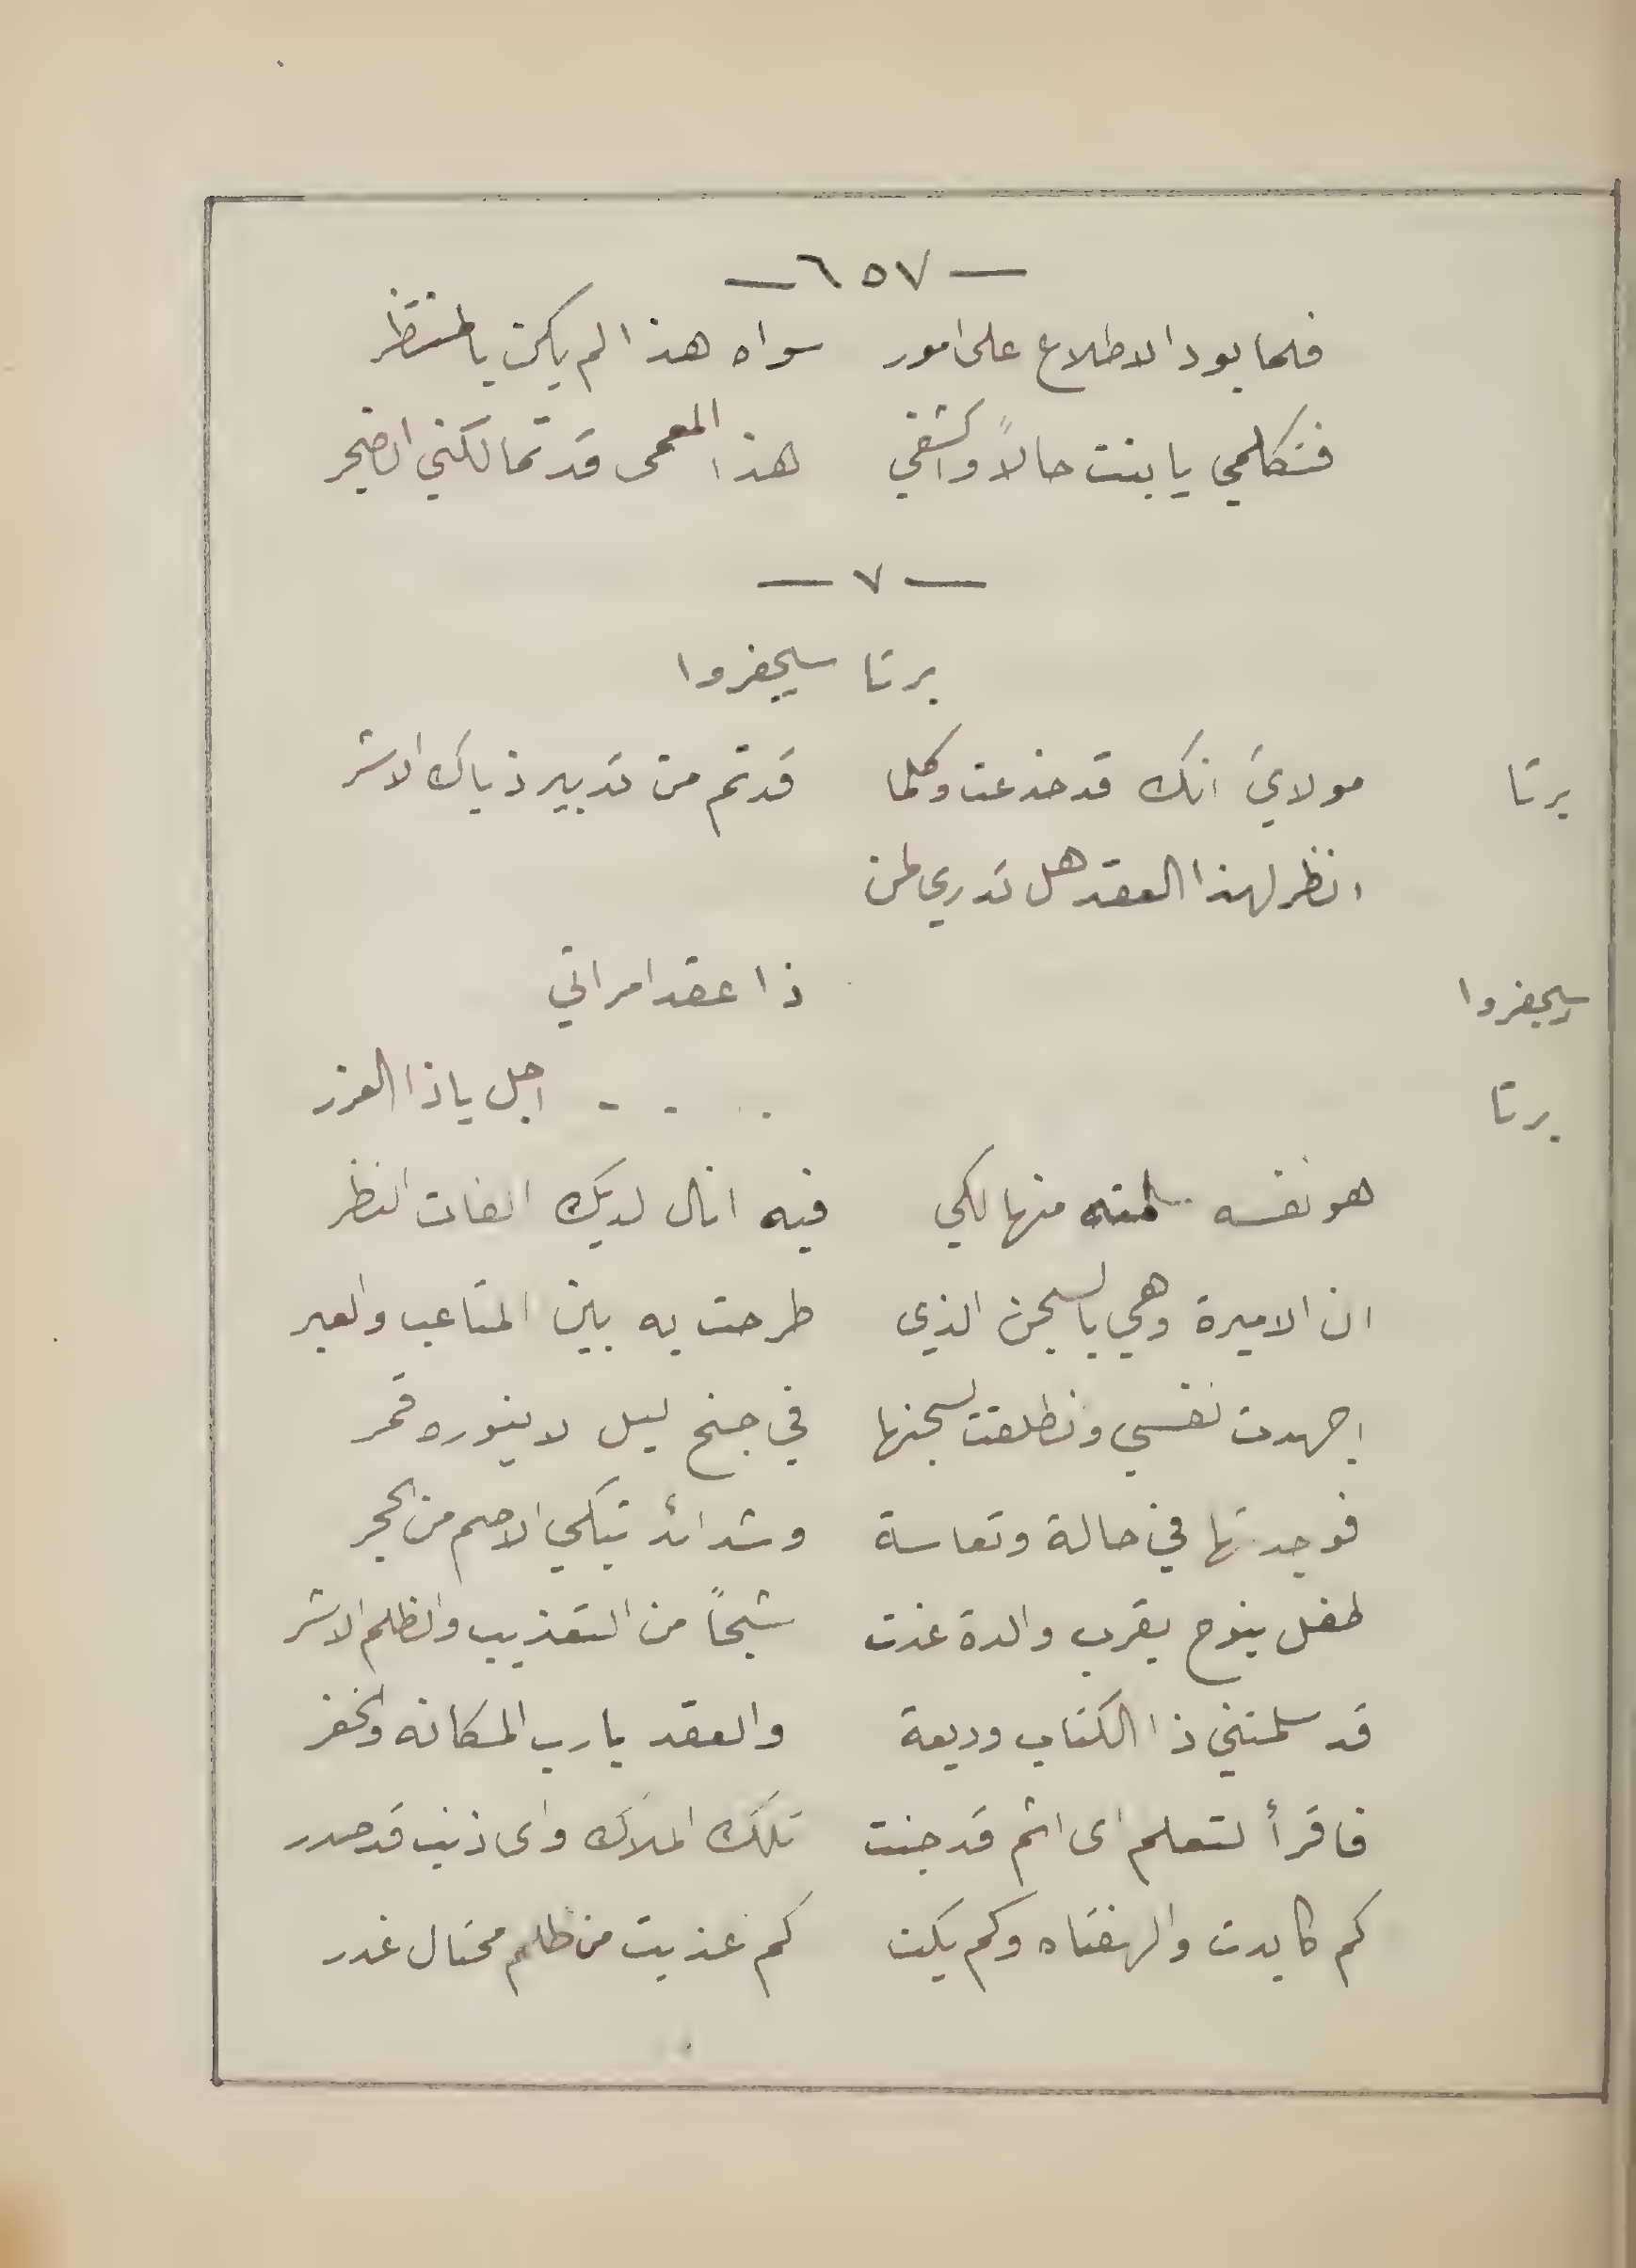 — ٦٥٧ —
فلما يود الاطلاع على امور سواه هذا لم يكن بالمنتظر
فتكلمي يا بنت حالاً واكشفي هذا المعمى قد تمالكني الضجر
— ٧ —
برتا سيجفروا
برتا مولايَ انك قد خدعت وكلما قد تم من تدبير ذياك الاشر
انظر لهذا العقد هل تدري لمن
سيجفروا ذا عقد امراتي
برتا . . - - اجل ياذا الغرر
هو نفسه سلمته منها لكي فيه انال لديك الفات النظر
ان الاميرة وهي بالسجن الذي طرحت به بين المتاعب والعبر
اجهدت نفسي وانطلقت لسجنها في جنح ليل لا ينوره قمر
فوجدتها في حالة وتعاسة وشدائد تبكي الاصم من الحجر
طفل ينوح بقرب والدة غدت شبحاً من التعذيب والظلم الاشر
قد سلمتني ذا الكتاب وديعة والعقد يا رب المكانه والخفر
فاقرأ لتعلم اى اثم قد جنت تلك الملاك واى ذنب قد صدر
كم كابدت والهفتاه وكم بكت كم عذبت من ظلم محتال غدر